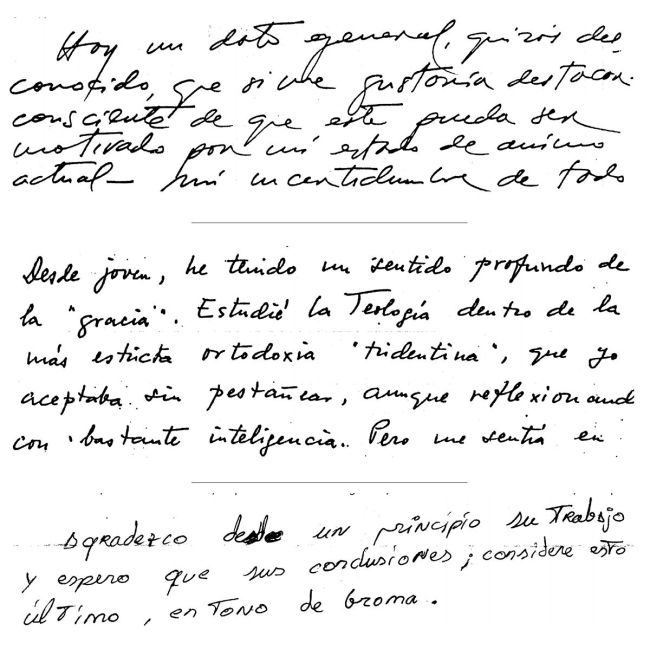 Hay un dato general, quizás des
conocido, que si me gustaría destacar.
consciente de que este pueda ser
motivado por mi estado de animo
actual — mi incertidumbre de todo
Desde joven, he tenido un sentido profundo de
la "gracia". Estudié la Teología dentro de la
más estricta ortodoxia "tridentina", que yo
aceptaba sin pestañear, aunque reflexionand
con bastante inteligencia. Pero me sentía en
agradezco desde un principio su Trabajo
y espero que sus conclusiones; considere esto
último, en Tono de broma.